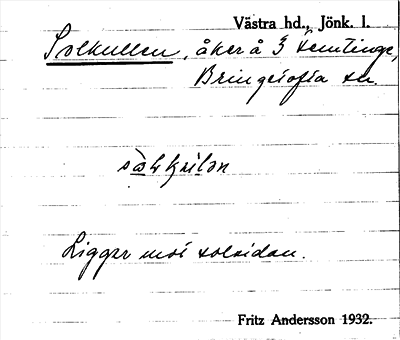 Västra hd., Jönk. l.
Solkullen, åker å 3
Bringetofta sn.
Ligger mot solsidan.
Fritz Andersson 1932.